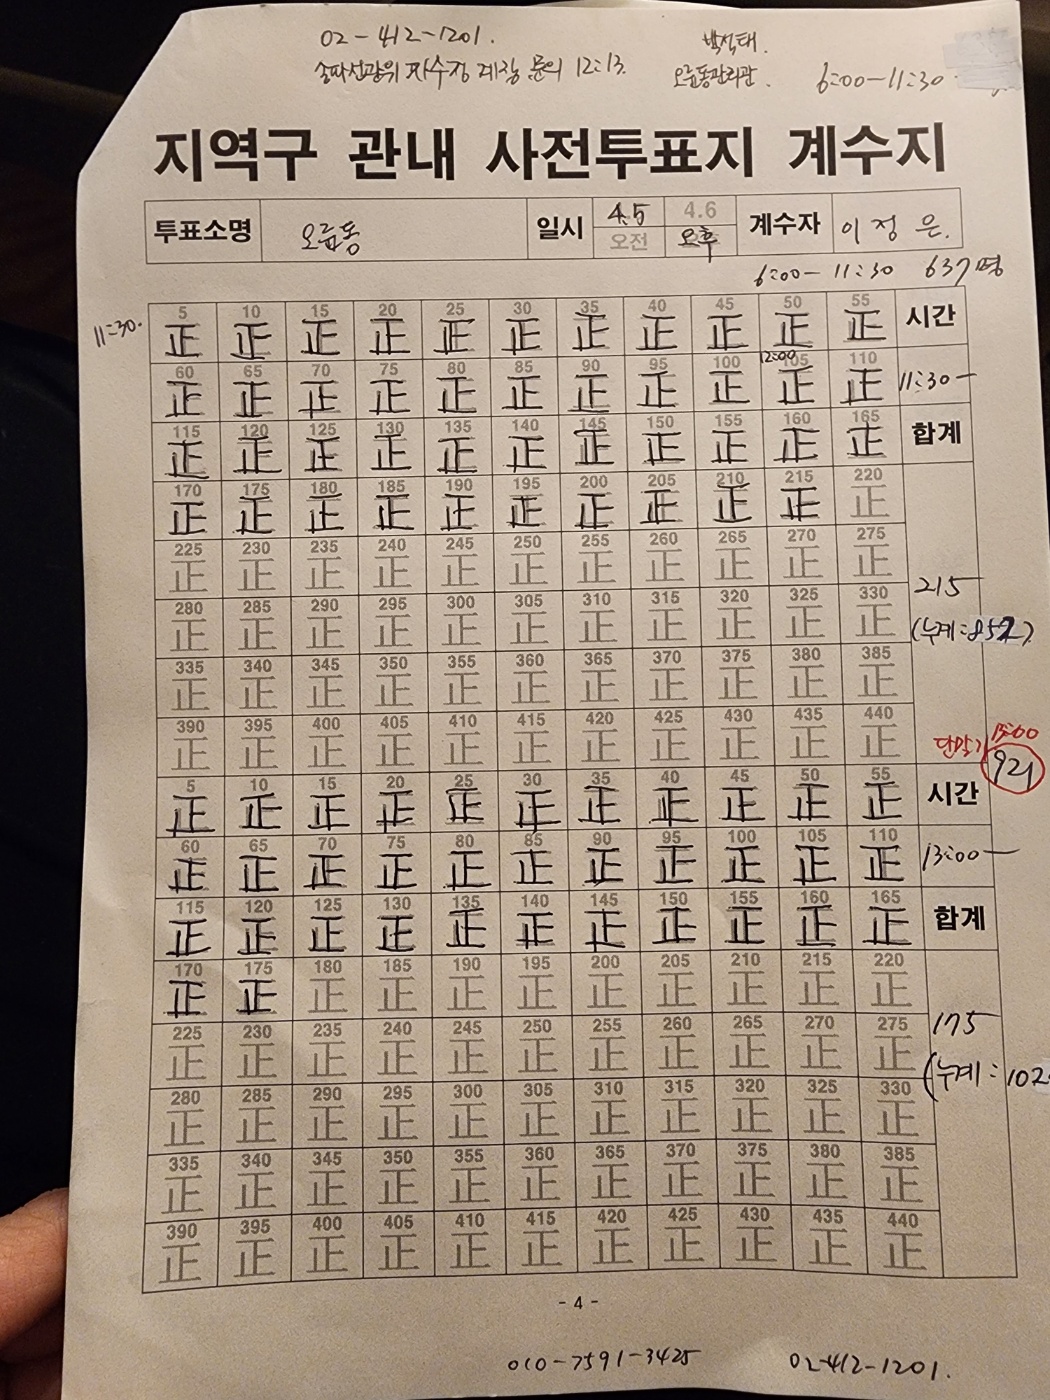 02-412-1201. 박석태.
송파선관위 지수정 계장 문의 12:13. 오륜동관리관. 6:00-11:30
지역구 관내 사전투표지 계수지
투표소명 오륜동 일시 4.5 4.6 오전 오후 계수자 이정은.
6:00-11:30 637명
11:30.
5 10 15 20 25 30 35 40 45 50 55 시간
正 正 正 正 正 正 正 正 正 正 正
12:00
60 65 70 75 80 85 90 95 100 105 110 11:30-
正 正 正 正 正 正 正 正 正 正 正
115 120 125 130 135 140 145 150 155 160 165 합계
正 正 正 正 正 正 正 正 正 正 正
170 175 180 185 190 195 200 205 210 215 220
正 正 正 正 正 正 正 正 正 正 正
225 230 235 240 245 250 255 260 265 270 275
正 正 正 正 正 正 正 正 正 正 正
215
280 285 290 295 300 305 310 315 320 325 330
正 正 正 正 正 正 正 正 正 正 正
(누계:852)
335 340 345 350 355 360 365 370 375 380 385
正 正 正 正 正 正 正 正 正 正 正
390 395 400 405 410 415 420 425 430 435 440
正 正 正 正 正 正 正 正 正 正 正
921
5 10 15 20 25 30 35 40 45 50 55 시간
正 正 正 正 正 正 正 正 正 正 正
60 65 70 75 80 85 90 95 100 105 110 13:00-
正 正 正 正 正 正 正 正 正 正 正
115 120 125 130 135 140 145 150 155 160 165 합계
正 正 正 正 正 正 正 正 正 正 正
170 175 180 185 190 195 200 205 210 215 220
正 正 正 正 正 正 正 正 正 正 正
225 230 235 240 245 250 255 260 265 270 275 175
正 正 正 正 正 正 正 正 正 正 正
(누계:102
280 285 290 295 300 305 310 315 320 325 330
正 正 正 正 正 正 正 正 正 正 正
335 340 345 350 355 360 365 370 375 380 385
正 正 正 正 正 正 正 正 正 正 正
390 395 400 405 410 415 420 425 430 435 440
正 正 正 正 正 正 正 正 正 正 正
- 4 -
010-7591-3425 02-412-1201.